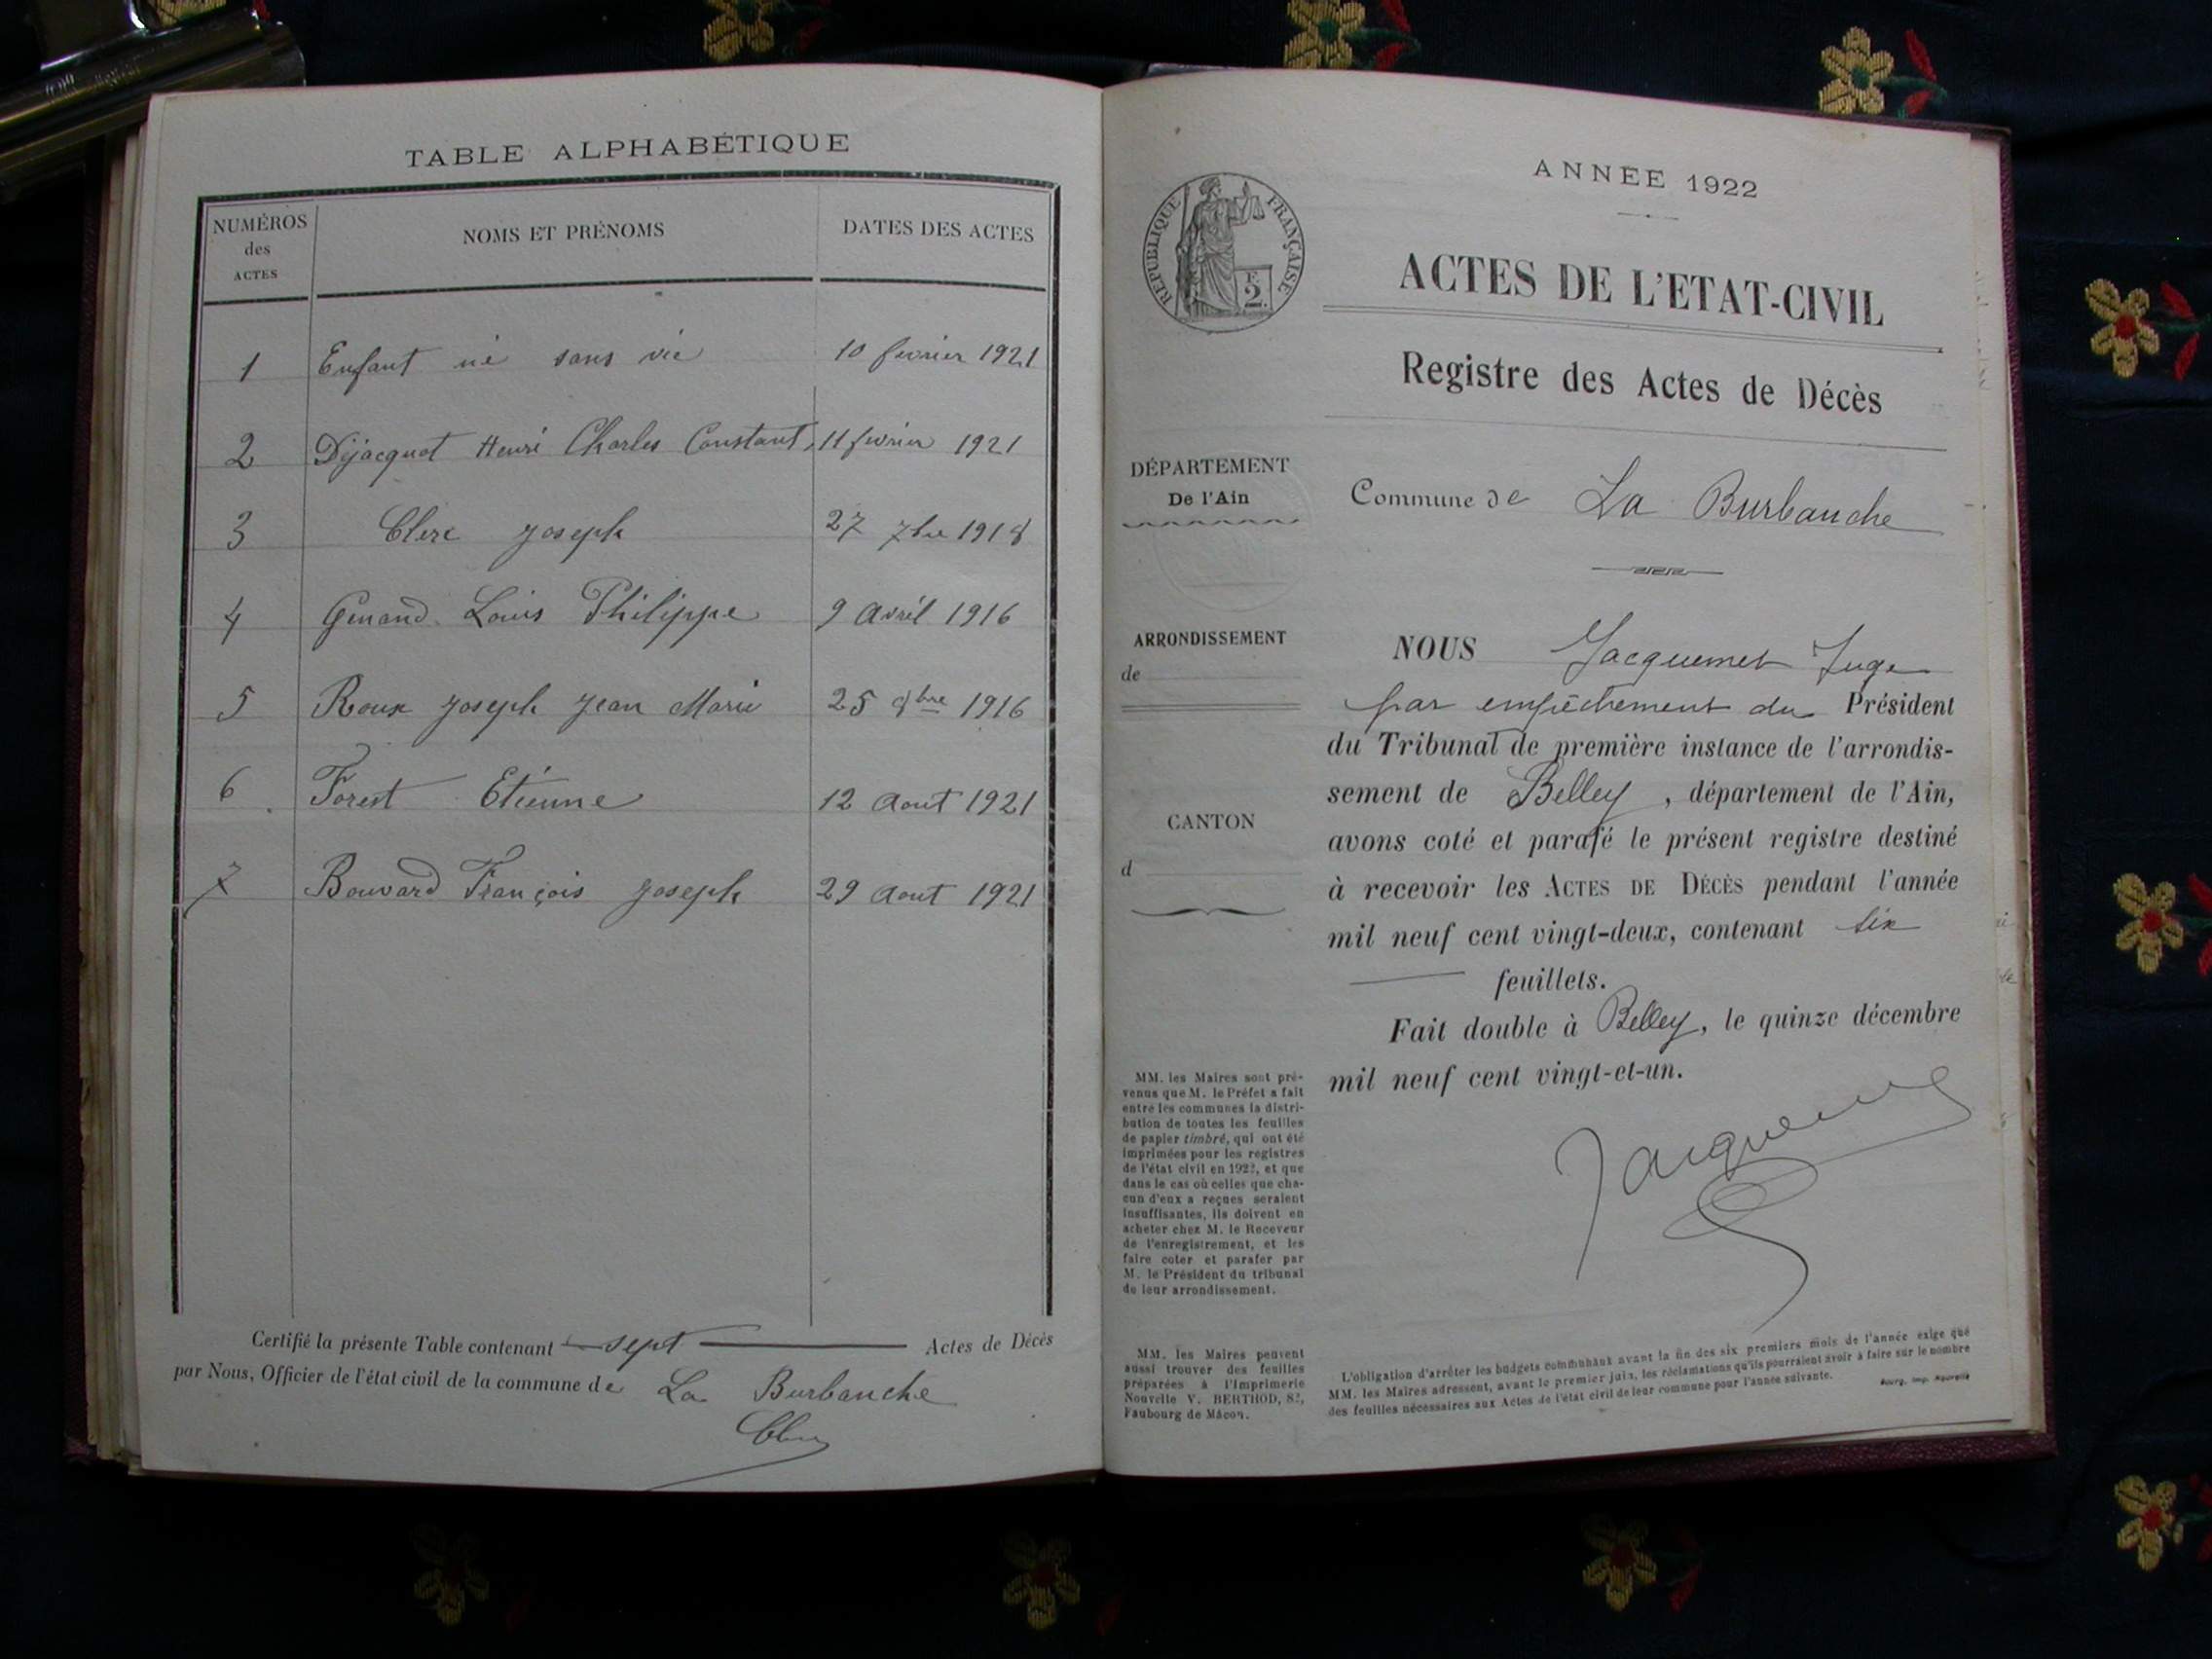 TABLE ALPHABÉTIQUE
NUMÉROS des ACTES
NOMS ET PRÉNOMS
DATES DES ACTES
1 Enfant né sans vie 10 février 1921
2 Dijacquot Henri Charles Constant, 11 février 1921
3 Clerc Joseph 27 7bre 1918
4 Genand Louis Philippe 9 avril 1916
5 Roux Joseph Jean Marie 25 8bre 1916
6 Forest Etienne 12 Aout 1921
7 Bouvard François Joseph 29 Aout 1921
Certifié la présente Table contenant sept Actes de Décès
par Nous, Officier de l'état civil de la commune de La Burbanche
ANNÉE 1922
RÉPUBLIQUE FRANÇAISE
2 F.
ACTES DE L'ETAT-CIVIL
Registre des Actes de Décès
DÉPARTEMENT
De l'Ain
Commune de La Burbanche
ARRONDISSEMENT
de
CANTON
d
NOUS Jacquemet Juge
par empêchement du Président
du Tribunal de première instance de l'arrondis-
sement de Belley, département de l'Ain,
avons coté et parafé le présent registre destiné
à recevoir les ACTES DE DÉCÈS pendant l'année
mil neuf cent vingt-deux, contenant six
feuillets.
Fait double à Belley, le quinze décembre
mil neuf cent vingt-et-un.
MM. les Maires sont pré-
venus que M. le Préfet a fait
entre les communes la distri-
bution de toutes les feuilles
de papier timbré, qui ont été
imprimées pour les registres
de l'état civil en 1922, et que
dans le cas où celles que cha-
cun d'eux a reçues seraient
insuffisantes, ils doivent en
acheter chez M. le Receveur
de l'enregistrement, et les
faire coter et parafer par
M. le Président du tribunal
de leur arrondissement.
MM. les Maires peuvent
aussi trouver des feuilles
préparées à l'Imprimerie
Nouvelle V. BERTHOD, 82,
Faubourg de Mâcon.
L'obligation d'arrêter les budgets communaux avant la fin des six premiers mois de l'année exige que
MM. les Maires adressent, avant le premier juin, les réclamations qu'ils pourraient avoir à faire sur le nombre
des feuilles nécessaires aux Actes de l'état civil de leur commune pour l'année suivante.
Bourg, Imp. Nouvelle